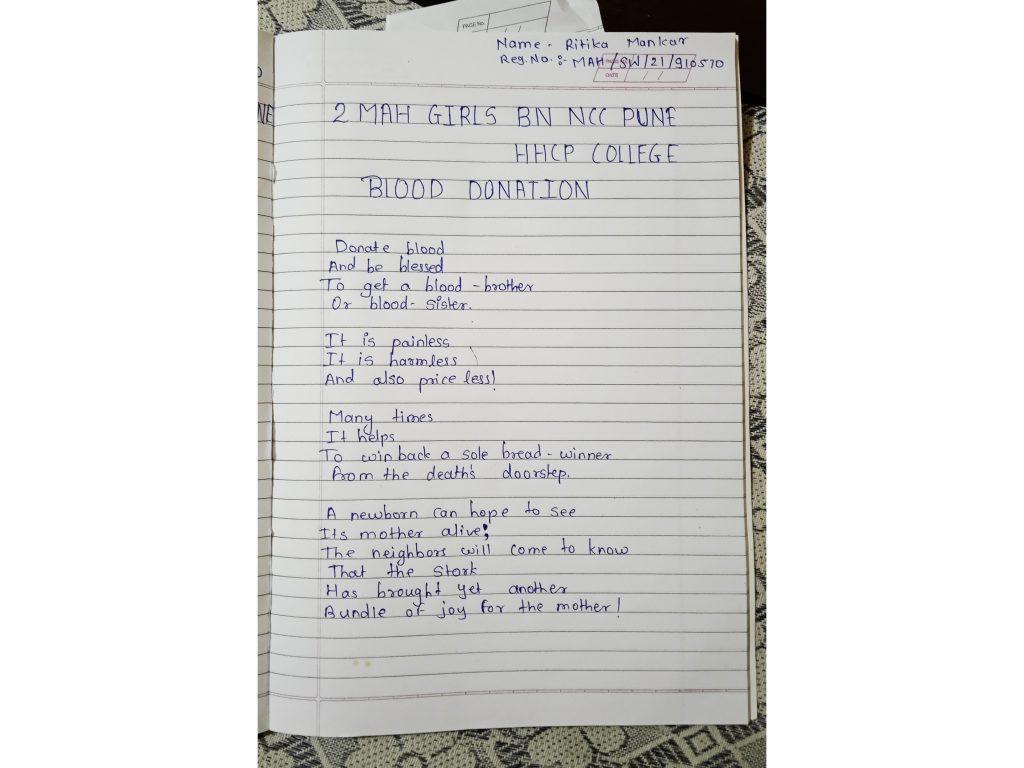 PAGE No.
Name - Ritika Mankar
Reg. No. :- MAH/SW/21/910570
DATE
NE
2 MAH GIRLS BN NCC PUNE
HHCP COLLEGE
BLOOD DONATION
Donate blood
And be blessed
To get a blood - brother
Or blood - sister.
It is painless
It is harmless
And also price less!
Many times
It helps
To win back a sole bread - winner
From the death's doorstep.
A newborn can hope to see
Its mother alive;
The neighbors will come to know
That the stork
Has brought yet another
Bundle of joy for the mother!